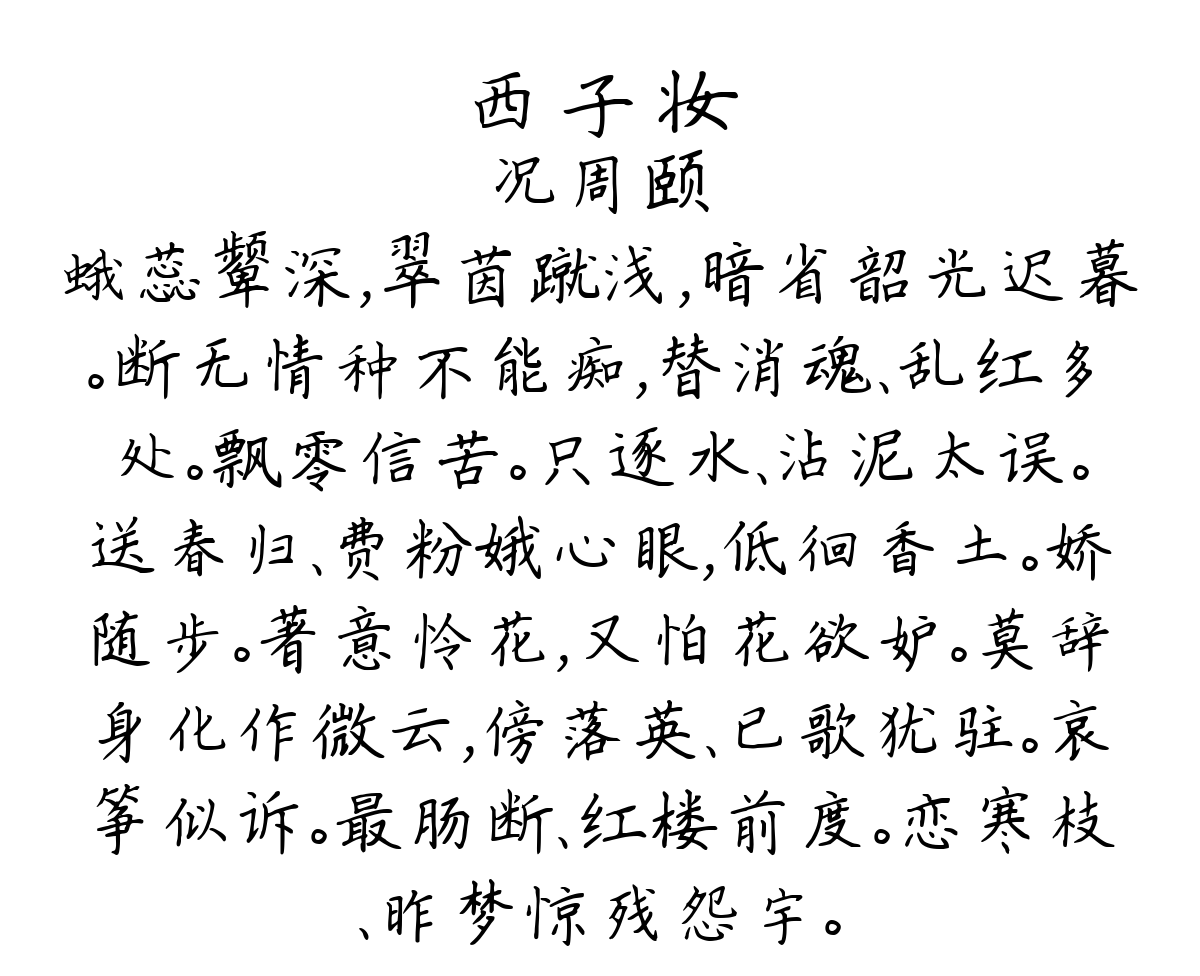 西子妆
况周颐
蛾蕊颦深,翠茵蹴浅,暗省韶光迟暮
。断无情种不能痴,替消魂、乱红多
处。飘零信苦。只逐水、沾泥太误。
送春归、费粉娥心眼,低徊香土。娇
随步。著意怜花,又怕花欲妒。莫辞
身化作微云,傍落英、已歌犹驻。哀
筝似诉。最肠断、红楼前度。恋寒枝
、昨梦惊残怨宇。